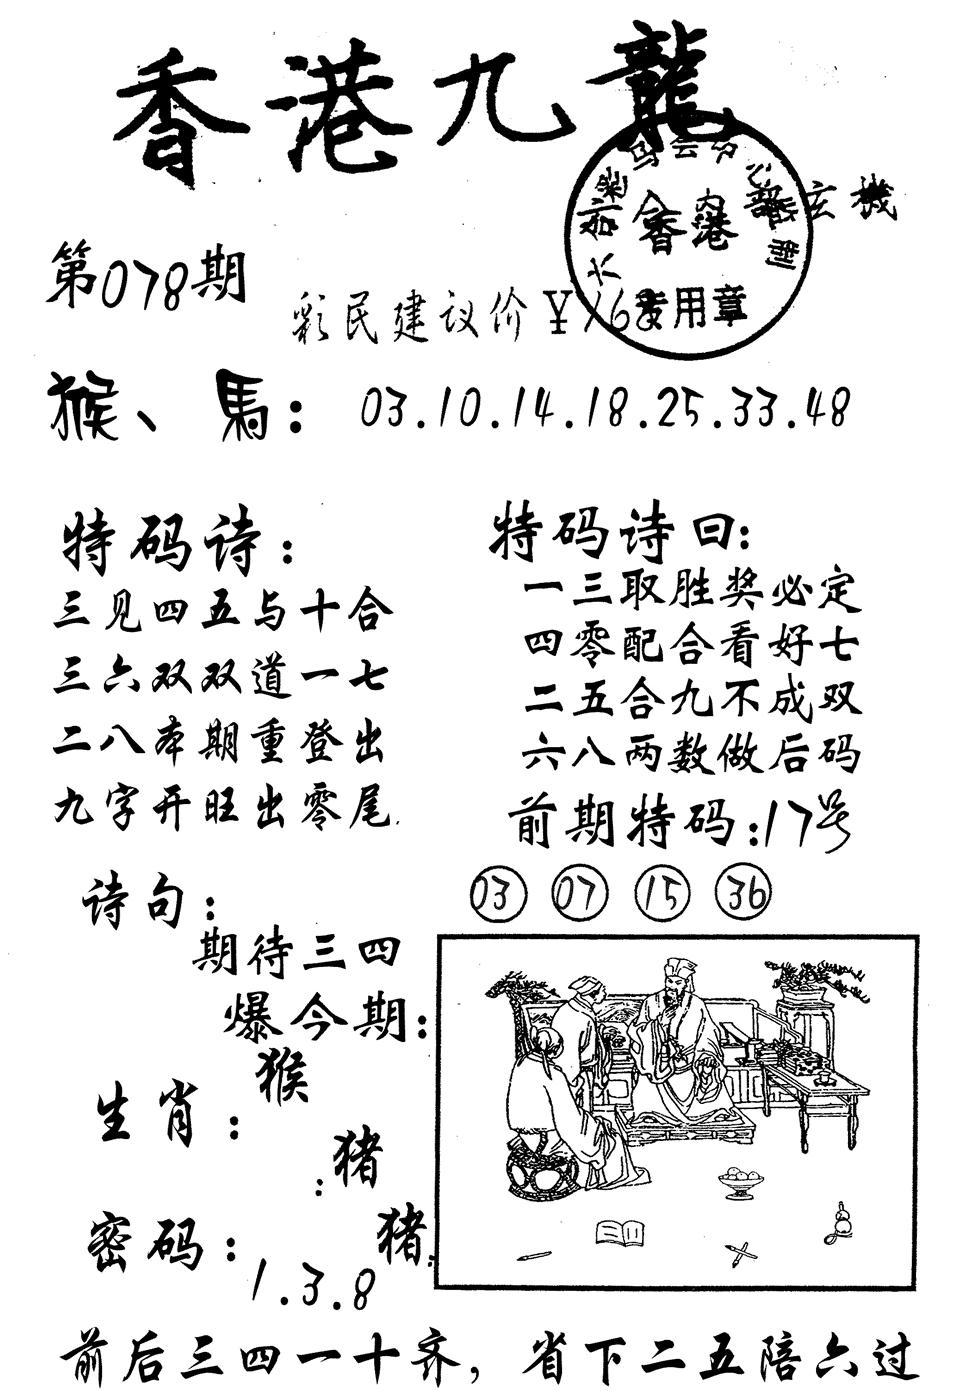 香港九龍
内部玄機
香港
专用章
第078期
彩民建议价￥168
猴、馬：03.10.14.18.25.33.48
特码诗：
三见四五与十合
三六双双道一七
二八本期重登出
九字开旺出零尾.
特码诗曰:
一三取胜奖必定
四零配合看好七
二五合九不成双
六八两数做后码
前期特码:17号
03 07 15 36
诗句：
期待三四
爆今期：
猴
生肖：
：猪
密码：
猪：
1.3.8
前后三四一十齐，省下二五陪六过